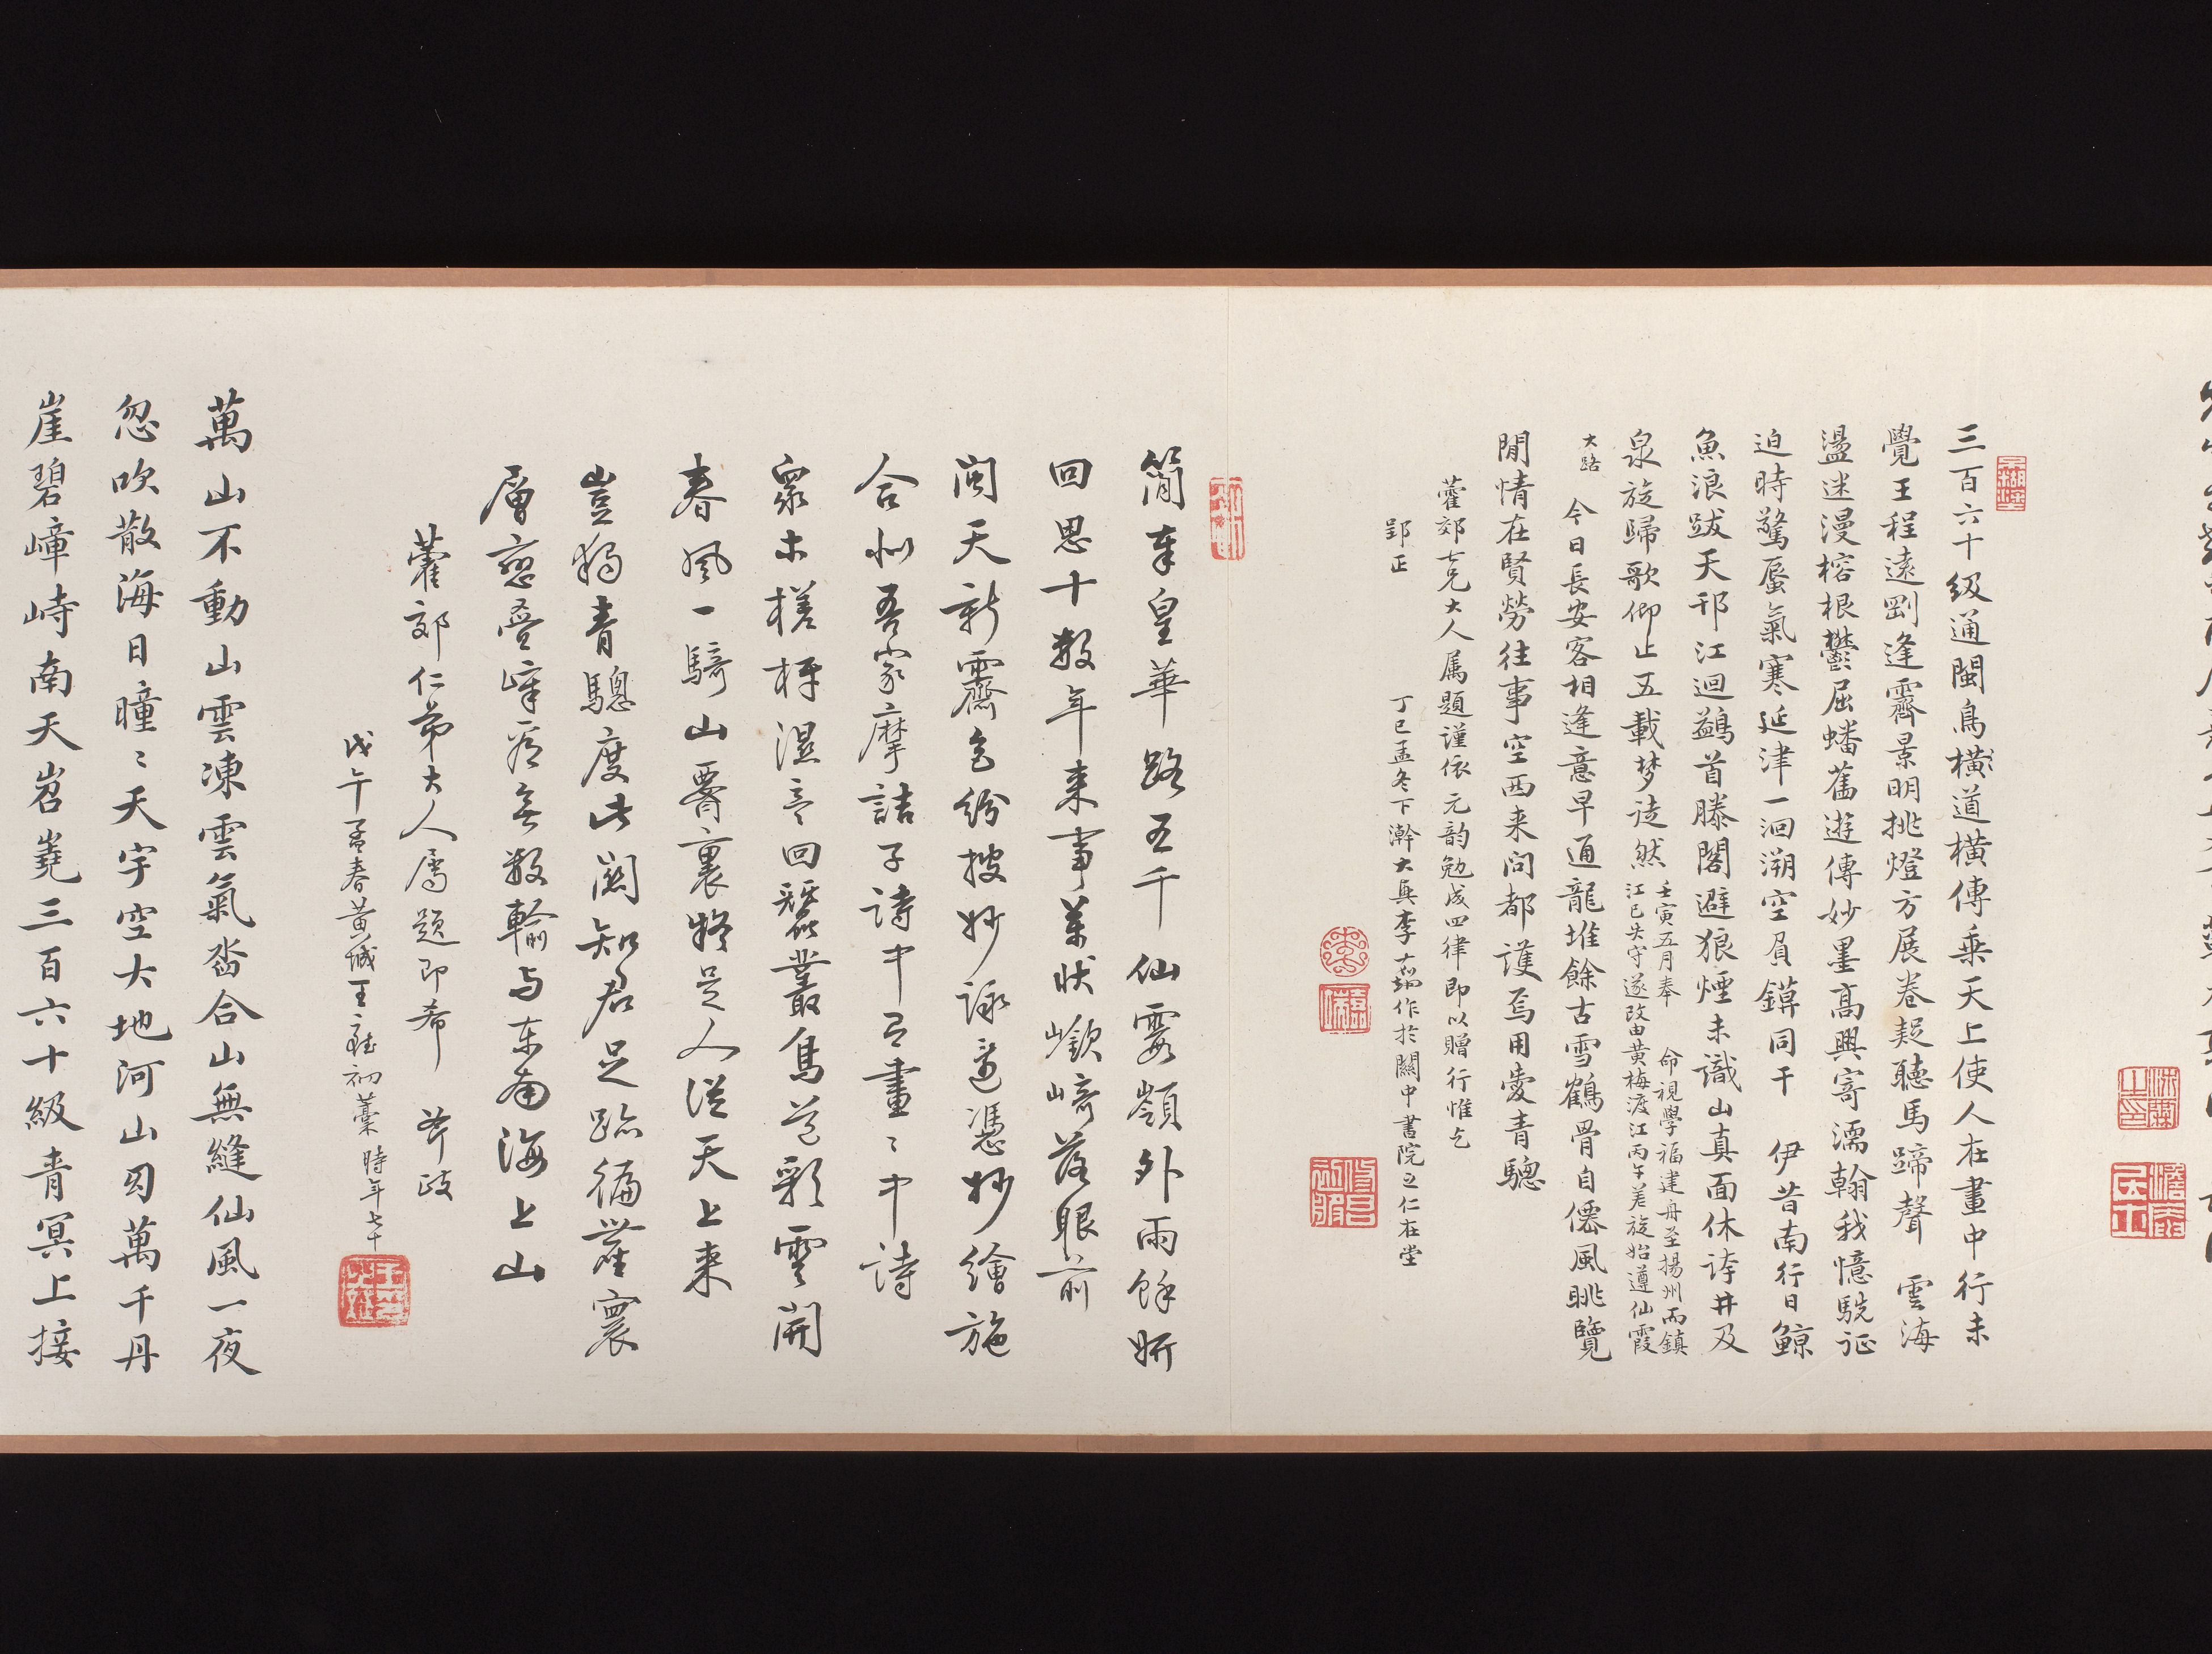 三百六十級通閩鳥橫道橫傳乘天上使人在畫中行未
覺王程遠剛逢霽景明挑燈方展卷起聽馬蹄聲 雲海
盪迷漫榕根鬱屈蟠舊遊傳妙墨高興寄濡翰我憶駪征
迫時驚蜃氣寒延津一洄溯空負鏌同干 伊昔南行日鯨
魚浪跋天邗江迴鷁首滕閣避狼煙未識山真面休誇井及
泉旋歸歌仰止五載梦徒然
壬寅五月奉 命視學福建舟至揚州而鎮
江已失守遂改由黄梅渡江丙午差旋始遵仙霞
大路
今日長安客相逢意早通龍堆餘古雪鶴骨自僊風眺覽
閒情在賢勞往事空西来问都護焉用愛青驄
藿郊七兄大人属題謹依元韵勉成四律即以贈行惟乞
郢正
丁巳孟冬下澣大興李嘉端作於關中書院之仁在堂
簡奉皇華路五千仙霞嶺外雨餘妍
回思十數年来事萬状嶔崎落眼前
閩天新霽色紛披妙詠還憑妙繪施
合似吾家摩詰子詩中有畫〻中詩
眾木槎枒濕意回蠶叢鳥道彩雲開
春風一騎山霽裏疑是人從天上来
豈獨青驄度此關知君足跡徧塵寰
層巒疊嶂看無數輸与東南海上山
藿郊仁弟大人屬題即希 斧政
戊午孟春黄城王 初藁時年七十
萬山不動山雲凍雲氣沓合山無縫仙風一夜
忽吹散海日曈〻天宇空大地河山匆萬千丹
崖碧嶂峙南天岧嶤三百六十級青冥上接